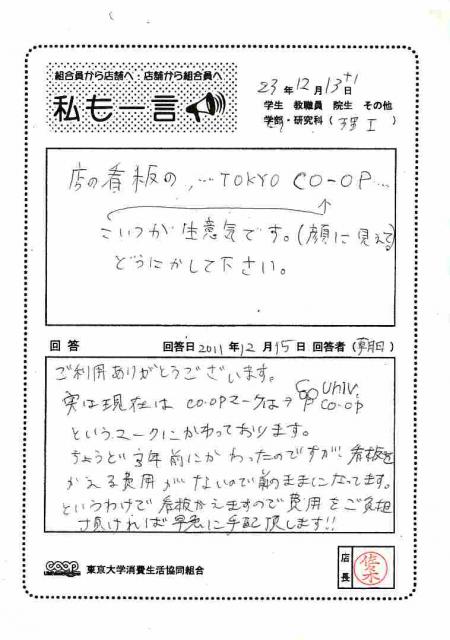 組合員から店舗へ 店舗から組合員へ
私も一言
23年12月13日
学生 教職員 院生 その他
学部・研究科( 理Ⅰ )
店の看板の,…TOKYO CO-OP…
↑
こいつが生意気です。(顔に見える)
どうにかして下さい。
回答 回答日2011年12月15日 回答者(朝田)
ご利用ありがとうございます。
実は現在は CO・OPマークは→ Univ. CO-OP
というマークにかわっております。
ちょうど 年前にかわったのですが、看板を
かえる費用がないので前のままになってます。
というわけで看板かえますので費用をご負担
頂ければ早急に手配致します!!
coop 東京大学消費生活協同組合
店長 佐々木